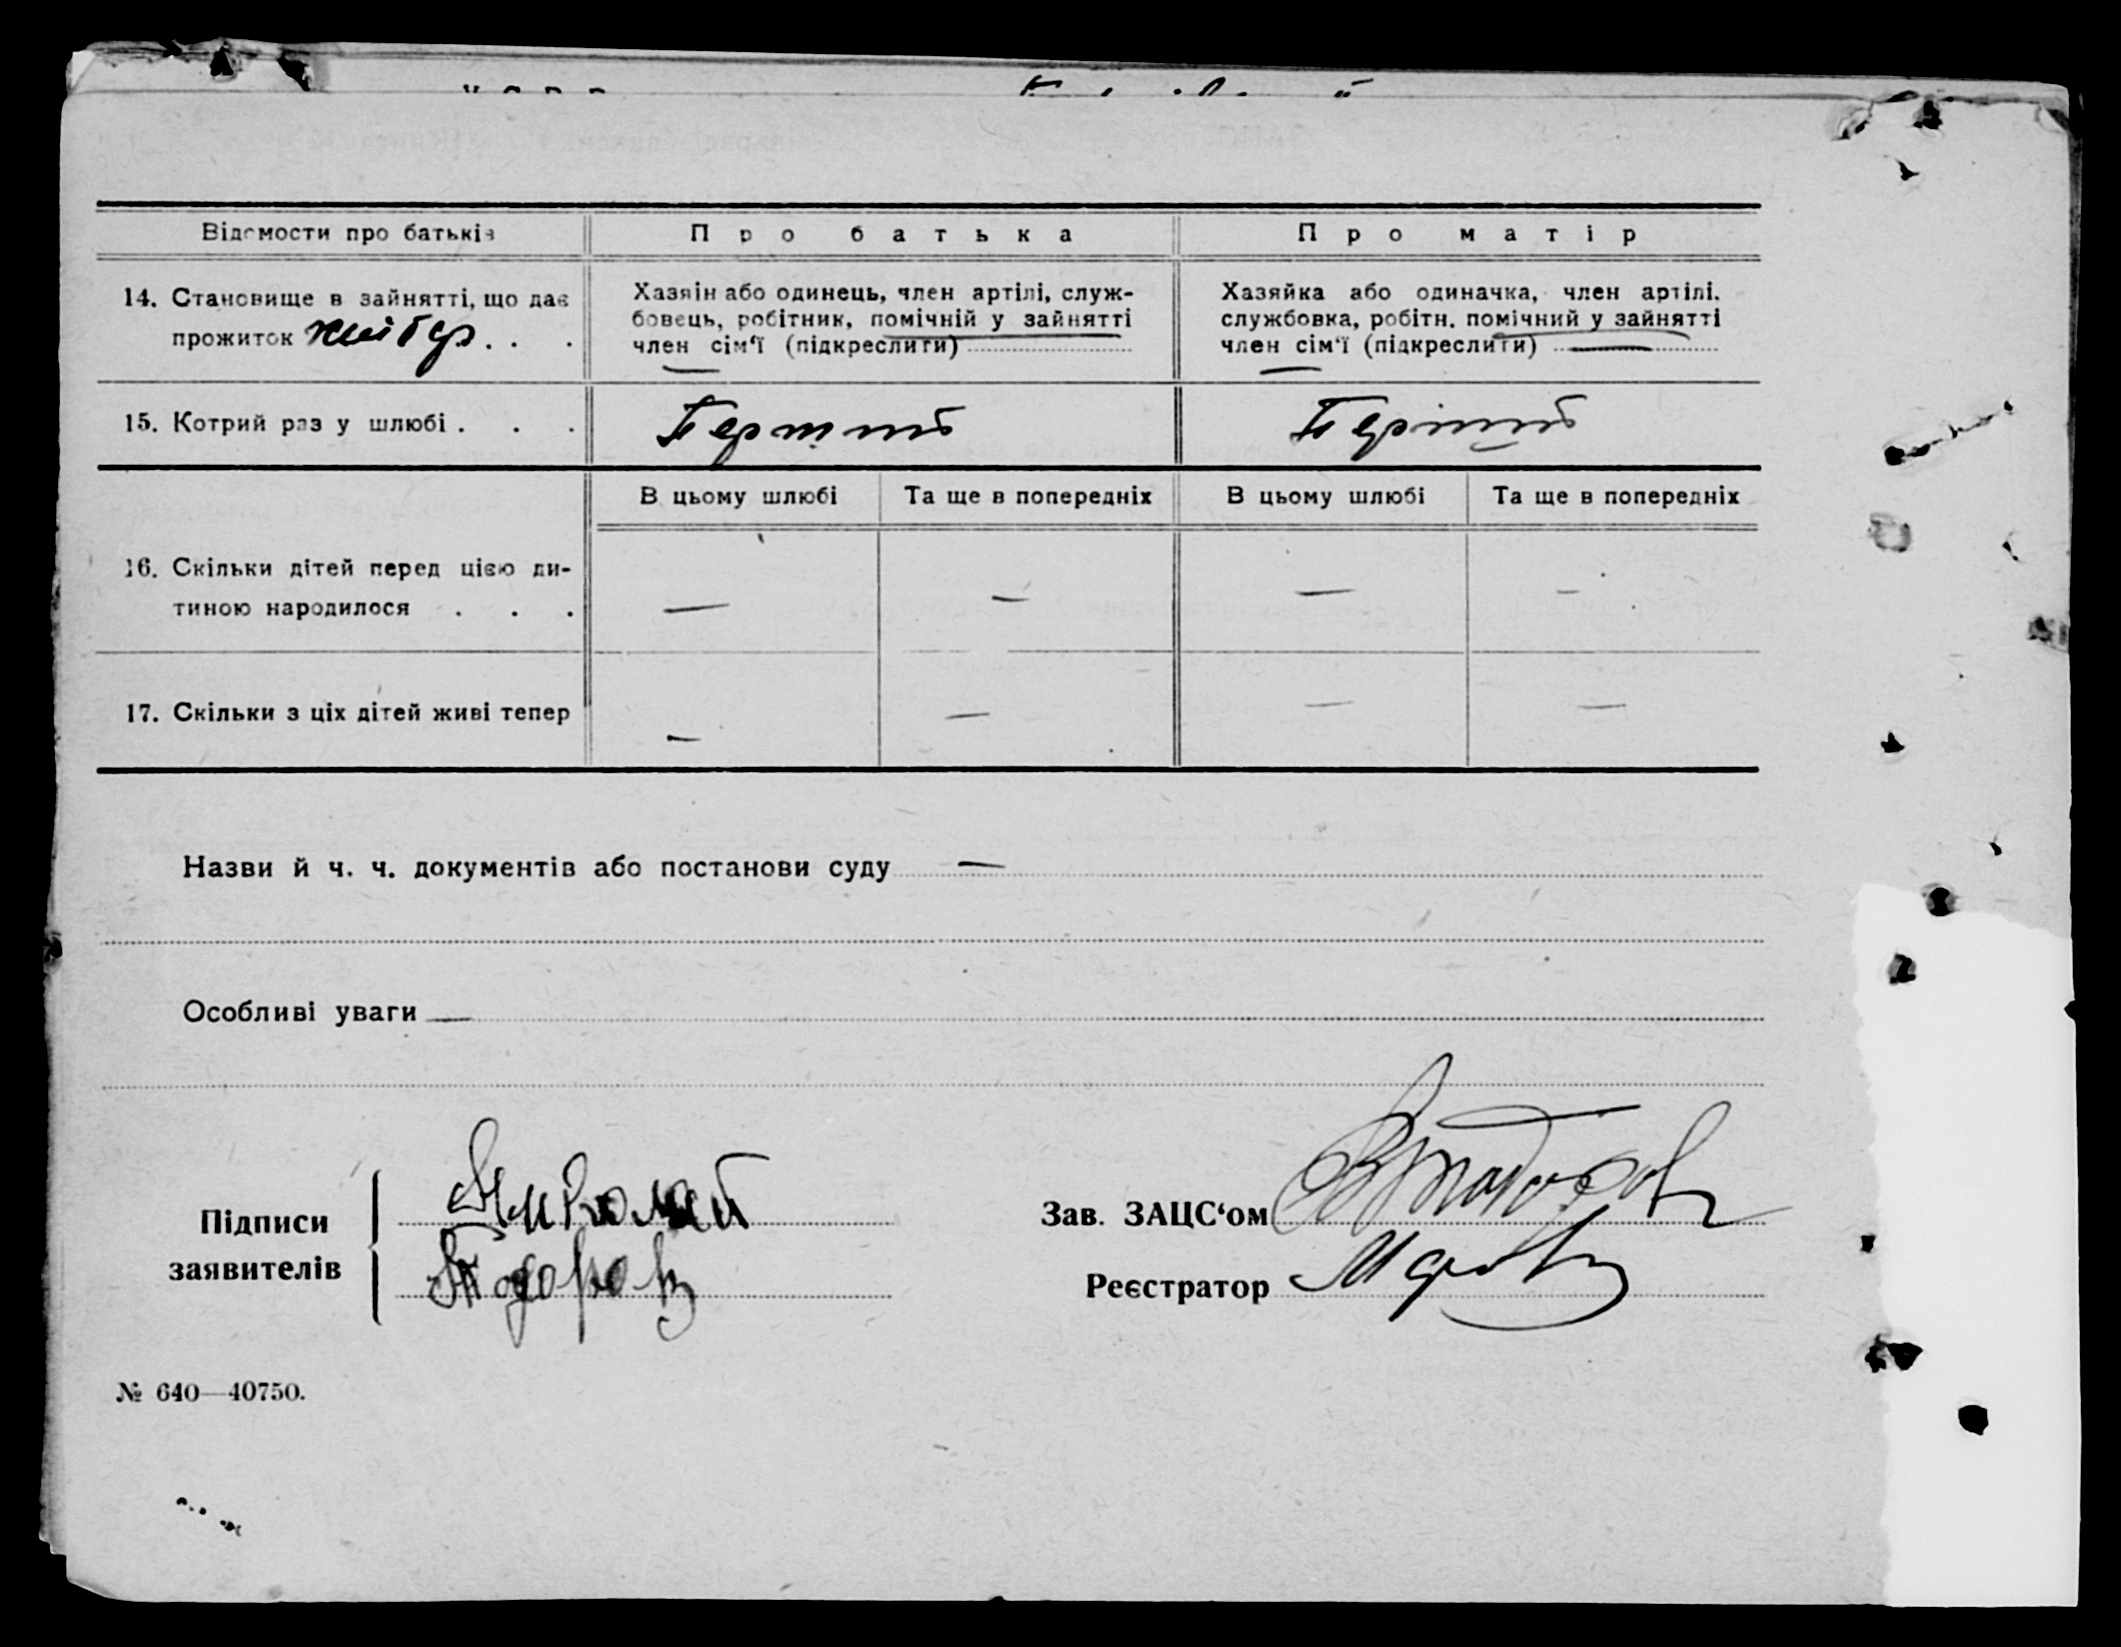 Відомости про батьків
Про батька
Про матір
14. Становище в зайнятті, що дає
прожиток . . .
Хазяїн або одинець, член артілі, служ-
бовець, робітник, помічній у зайнятті
член сім‘ї (підкреслити)
Хазяйка або одиначка, член артілі.
службовка, робітн. помічний у зайнятті
член сім‘ї (підкреслити) —
15. Котрий раз у шлюбі . . .
Перший
Перший
В цьому шлюбі
Та ще в попередніх
В цьому шлюбі
Та ще в попередніх
16. Скільки дітей перед цією ди-
тиною народилося . . .
— — — —
17. Скільки з ціх дітей живі тепер
— — — —
Назви й ч. ч. документів або постанови суду —
Особливі уваги —
Підписи
заявителів
Николай
Тодоров
Зав. ЗАЦС‘ом
Реєстратор
№ 640—40750.